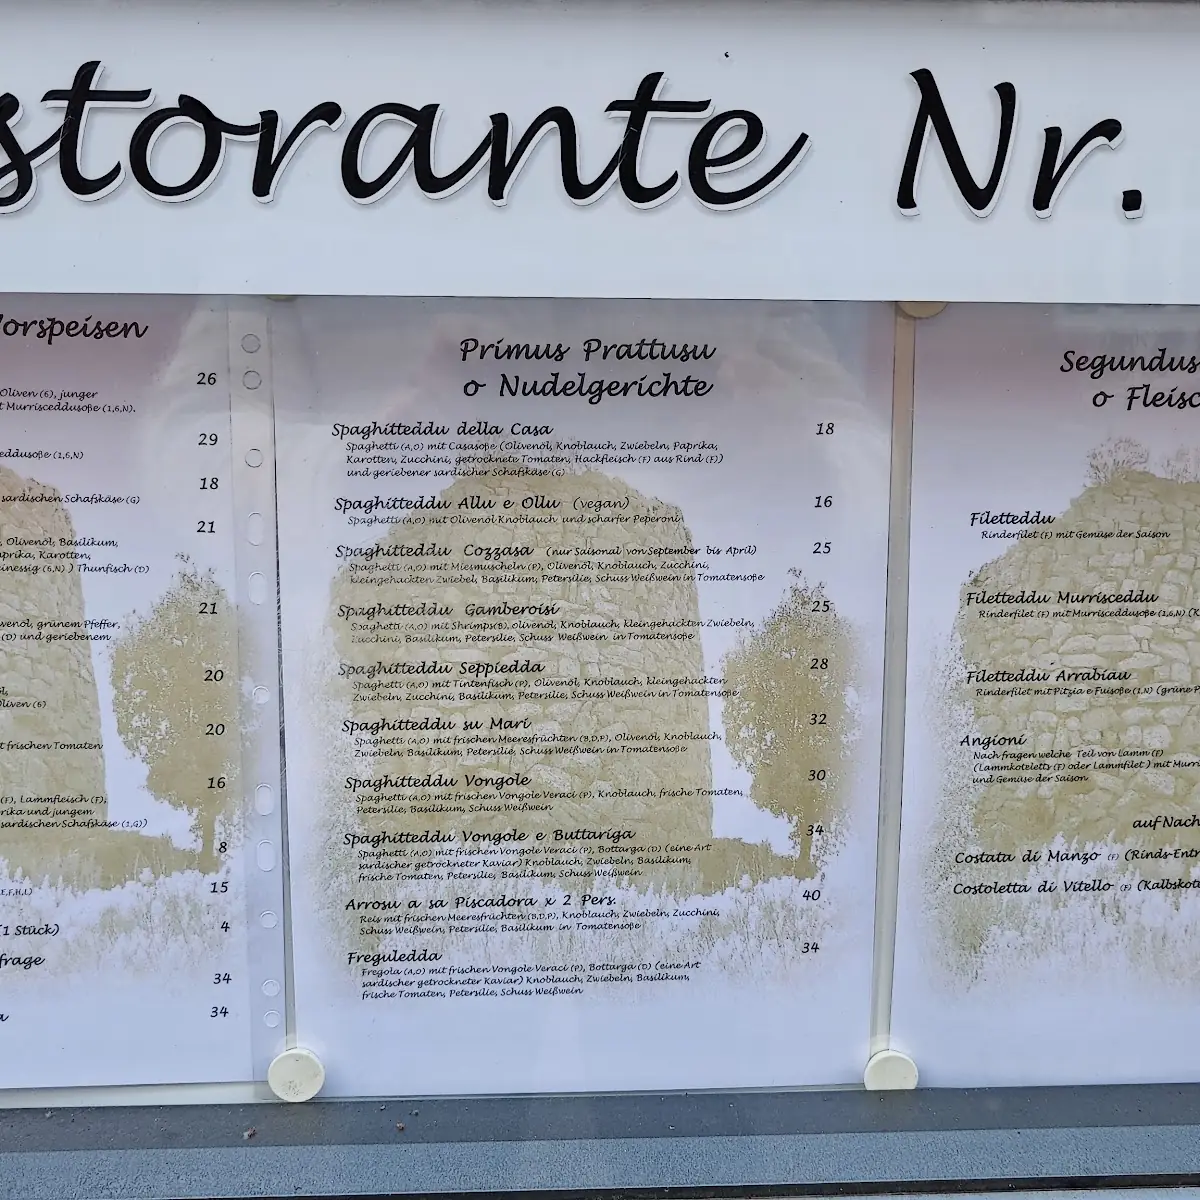 storante Nr.
Vorspeisen
26
Oliven (6), junger
t Murrisceddusoße (1,6,N).
29
eddusoße (1,6,N)
18
sardischen Schafskäse (G)
21
, Olivenöl, Basilikum,
aprika, Karotten,
inessig (6,N) ) Thunfisch (D)
21
venöl, grünem Pfeffer,
(D) und geriebenem
20
Oliven (6)
20
t frischen Tomaten
16
(F), Lammfleisch (F),
rika und jungem
sardischen Schafskäse (1,G))
8
15
E,F,H,L)
(1 Stück)
4
frage
34
34
Primus Prattusu
o Nudelgerichte
Spaghitteddu della Casa 18
Spaghetti (A,O) mit Casasoße (Olivenöl, Knoblauch, Zwiebeln, Paprika,
Karotten, Zucchini, getrocknete Tomaten, Hackfleisch (F) aus Rind (F))
und geriebener sardischer Schafskäse (G)
Spaghitteddu Allu e Ollu (vegan) 16
Spaghetti (A,O) mit Olivenöl Knoblauch und scharfer Peperoni
Spaghitteddu Cozzasa (nur Saisonal von September bis April) 25
Spaghetti (A,O) mit Miesmuscheln (P), Olivenöl, Knoblauch, Zucchini,
kleingehackten Zwiebel, Basilikum, Petersilie, Schuss Weißwein in Tomatensoße
Spaghitteddu Gamberoisi 25
Spaghetti (A,O) mit Shrimps(B), olivenöl, Knoblauch, kleingehackten Zwiebeln,
Zucchini, Basilikum, Petersilie, Schuss Weißwein in Tomatensoße
Spaghitteddu Seppiedda 28
Spaghetti (A,O) mit Tintenfisch (P), Olivenöl, Knoblauch, kleingehackten
Zwiebeln, Zucchini, Basilikum, Petersilie, Schuss Weißwein in Tomatensoße
Spaghitteddu su Mari 32
Spaghetti (A,O) mit frischen Meeresfrüchten (B,D,P), Olivenöl, Knoblauch,
Zwiebeln, Basilikum, Petersilie, Schuss Weißwein in Tomatensoße
Spaghitteddu Vongole 30
Spaghetti (A,O) mit frischen Vongole Veraci (P), Knoblauch, frische Tomaten,
Petersilie, Basilikum, Schuss Weißwein
Spaghitteddu Vongole e Buttariga 34
Spaghetti (A,O) mit frischen Vongole Veraci (P), Bottarga (D) (eine Art
sardischer getrockneter Kaviar) Knoblauch, Zwiebeln, Basilikum,
frische Tomaten, Petersilie, Basilikum, Schuss Weißwein
Arrosu a sa Piscadora x 2 Pers. 40
Reis mit frischen Meeresfrüchten (B,D,P), Knoblauch, Zwiebeln, Zucchini,
Schuss Weißwein, Petersilie, Basilikum in Tomatensoße
Freguledda 34
Fregola (A,O) mit frischen Vongole Veraci (P), Bottarga (D) (eine Art
sardischer getrockneter Kaviar) Knoblauch, Zwiebeln, Basilikum,
frische Tomaten, Petersilie, Schuss Weißwein
Segundus
o Fleisc
Filetteddu
Rinderfilet (F) mit Gemüse der Saison
Filetteddu Murrisceddu
Rinderfilet (F) mit Murrisceddusoße (1,6,N) (K
Filetteddu Arrabiau
Rinderfilet mit Pitzia e Fuisoße (1,N) (grüne P
Angioni
Nach fragen welche Teil von Lamm (F)
(Lammkoteletts (F) oder Lammfilet ) mit Murri
und Gemüse der Saison
auf Nach
Costata di Manzo (F) (Rinds-Entr
Costoletta di Vitello (F) (Kalbskote